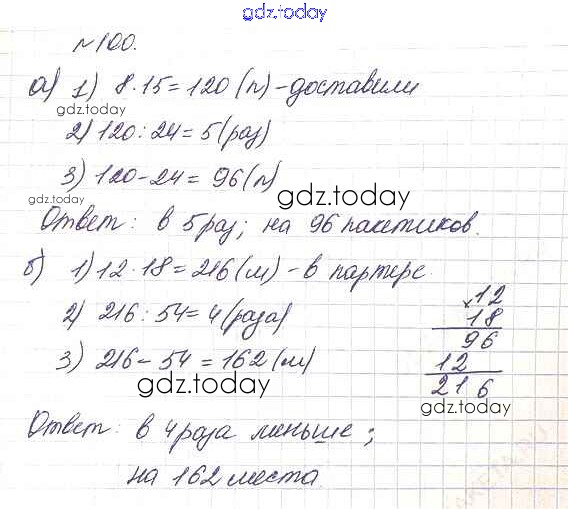 gdz.today
№100.
а) 1) 8·15=120(п)-доставили
gdz.today
2) 120:24=5(раз)
3) 120-24=96(п)
gdz.today
gdz.today
Ответ: в 5 раз; на 96 пакетиков.
б) 1) 12·18=216(м)-в партере.
2) 216:54=4(раза)
3) 216-54=162(м)
×12
18
96
12
216
gdz.today
gdz.today
Ответ: в 4 раза меньше;
на 162 места.